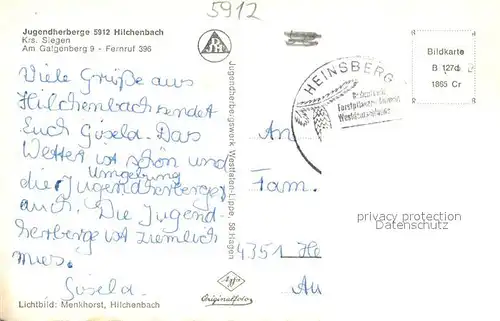 5912
Jugendherberge 5912 Hilchenbach
Krs. Siegen
Am Galgenberg 9 - Fernruf 396
Viele Grüße aus
Hilchenbach sendet
Euch Gisela. Das
Wetter ist schön und
Umgebung
die Jugendherberge
auch. Die Jugend-
herberge ist ziemlich
mies.
Gisela.
Lichtbild: Menkhorst, Hilchenbach
DJH
Jugendherbergswerk Westfalen-Lippe, 58 Hagen
Agfa
Originalfoto
HEINSBERG
Bildkarte
B 127d
1865 Cr
An
Fam.
4351 He
An
privacy protection
Datenschutz